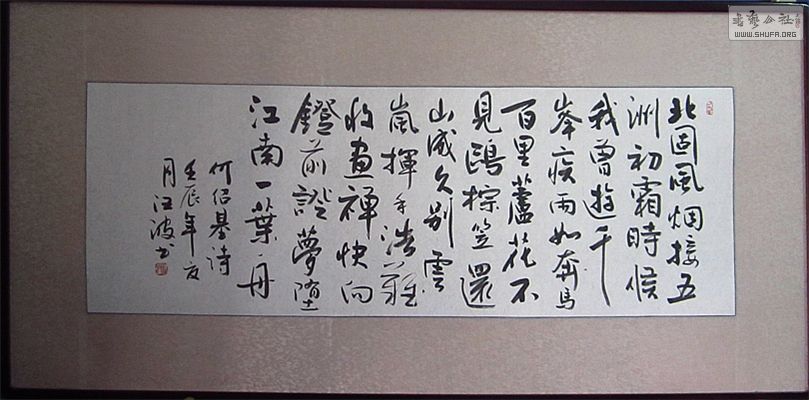 北固風烟接五
洲初霜時候
我曾遊千
峯疾雨如奔馬
百里蘆花不
見鷗棕笠還
山成久別雲
嵐揮手浩難
收畫禪快向
鐙前證夢墮
江南一葉舟
何紹基詩
壬辰年夏
月江波书
书艺公社
WWW.SHUFA.ORG